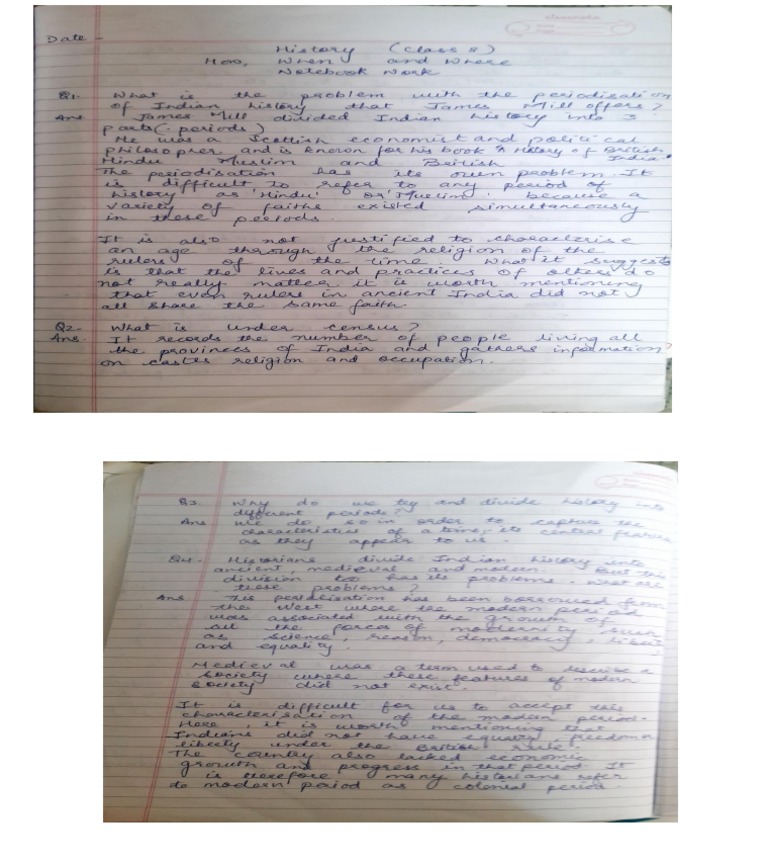 Date -
History (Class 8)
How, When and Where
Notebook Work
Q1. What is the problem with the periodisation
of Indian history that James Mill offers?
Ans James Mill divided Indian history into 3
parts (periods)
He was a Scottish economist and political
philosopher and is known for his book A History of British
India
Hindu Muslim and British
The periodisation has its own problem. It
is difficult to refer to any period of
history as 'Hindu' or 'Muslim' because a
variety of faiths existed simultaneously
in these periods.
It is also not justified to characterise
an age through the religion of the
rulers of the time. What it suggests
is that the lives and practices of others do
not really matter it is worth mentioning
that even rulers in ancient India did not
all share the same faith.
Q2- What is under census?
Ans. It records the number of people living all
the provinces of India and gathers information
on castes religion and occupation.
Q3. Why do we try and divide history into
different periods?
Ans We do so in order to capture the
characteristics of a time, its central features
as they appear to us.
Q4. Historians divide Indian history into
ancient, medieval and modern. But this
division too has its problems. What are
these problems?
Ans periodisation has been borrowed from
the West where the modern period
was associated with the growth of
all the forces of modernity such
as science, reason, democracy,
and equality.
Medieval was a term used to describe a
society where these features of modern
society did not exist.
It is difficult for us to accept this
characterisation of the modern period.
Here, it is worth mentioning that
Indians did not have equality, freedom or
liberty under the British rule.
The country also lacked economic
growth and progress in that period. It
is therefore many historians refer
to modern period as colonial period.